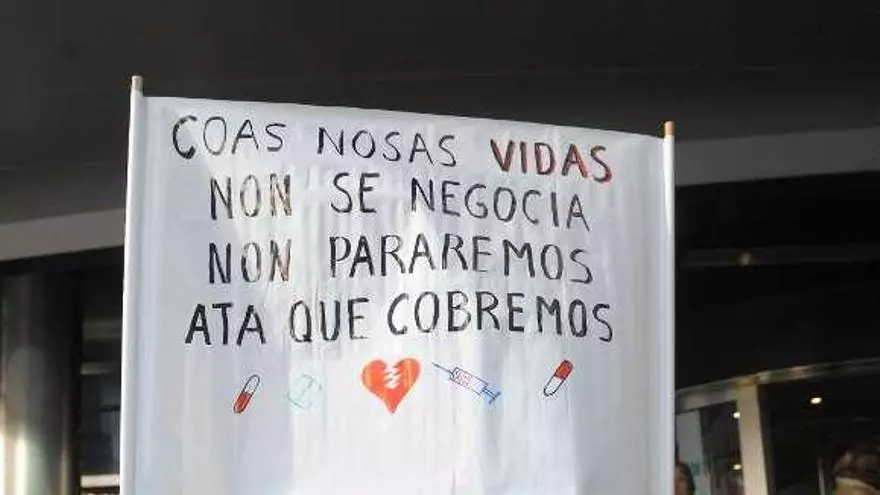 COAS NOSAS VIDAS
NON SE NEGOCIA
NON PARAREMOS
ATA QUE COBREMOS